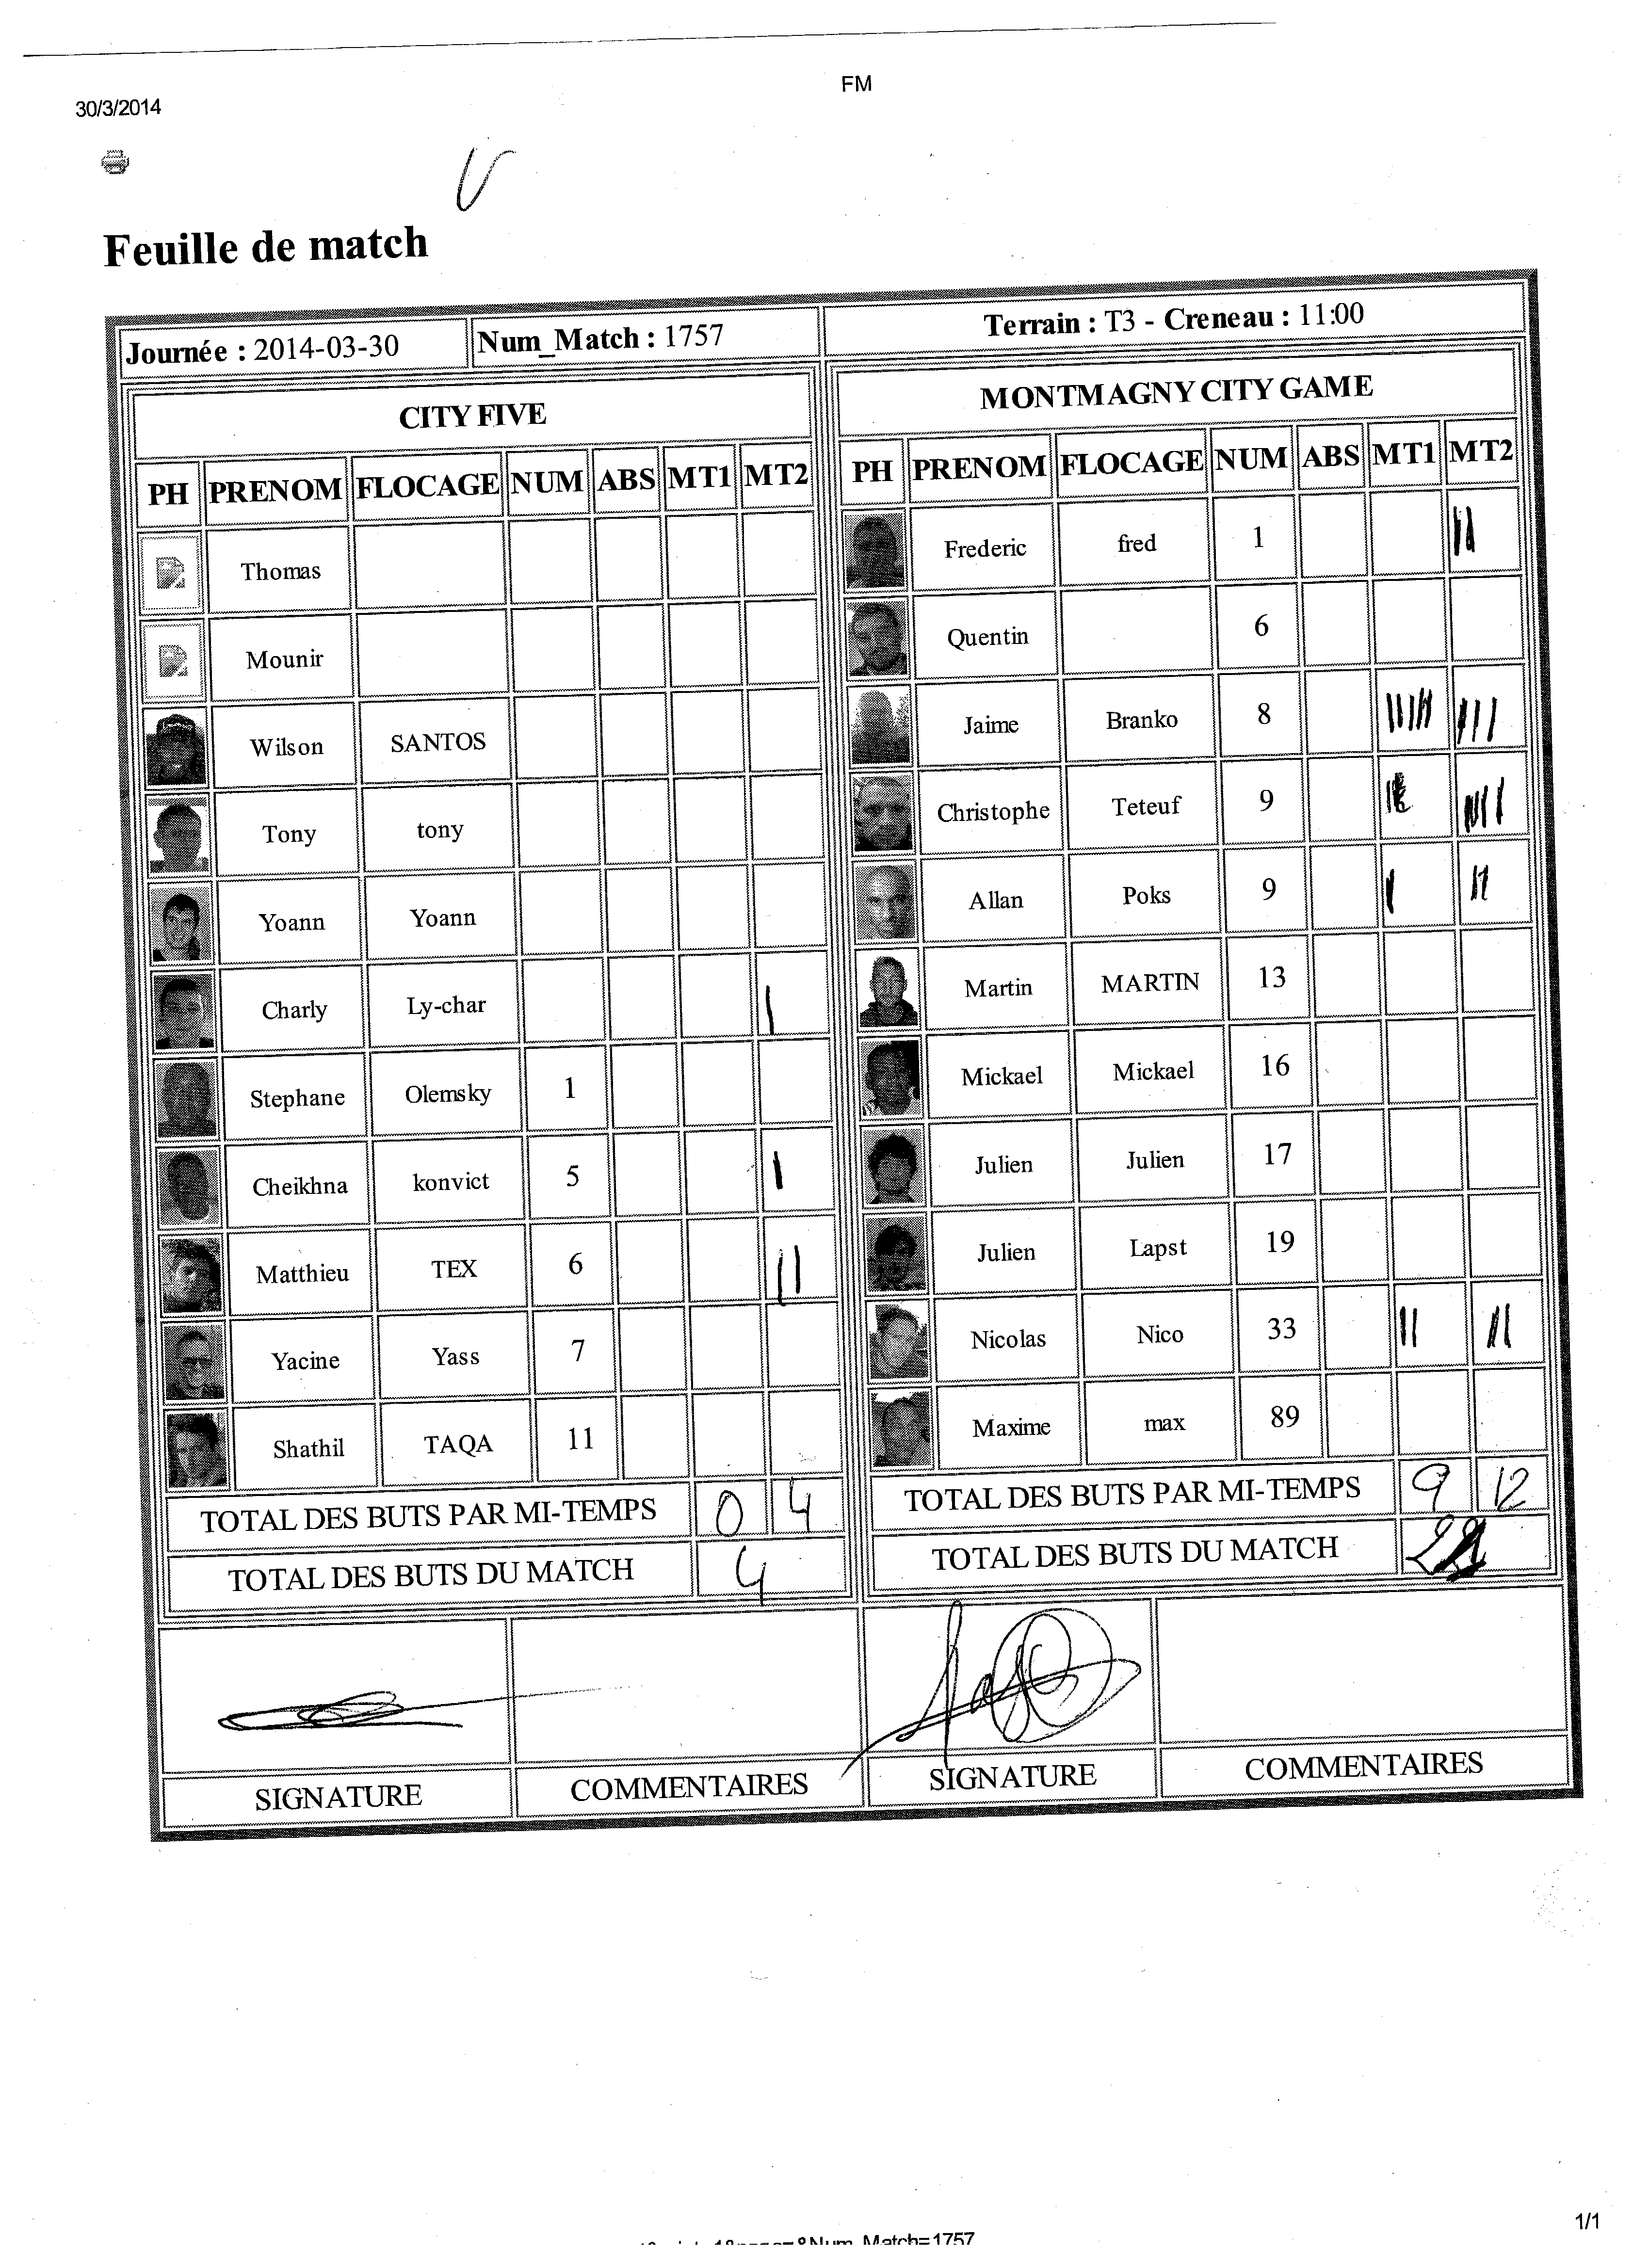 FM
30/3/2014
Feuille de match
Journée : 2014-03-30 Num_Match : 1757 Terrain : T3 - Creneau : 11:00
CITY FIVE
PH PRENOM FLOCAGE NUM ABS MT1 MT2
Thomas
Mounir
Wilson SANTOS
Tony tony
Yoann Yoann
Charly Ly-char |
Stephane Olemsky 1
Cheikhna konvict 5 |
Matthieu TEX 6 ||
Yacine Yass 7
Shathil TAQA 11
TOTAL DES BUTS PAR MI-TEMPS 0 4
TOTAL DES BUTS DU MATCH 4
SIGNATURE COMMENTAIRES
MONTMAGNY CITY GAME
PH PRENOM FLOCAGE NUM ABS MT1 MT2
Frederic fred 1 ||
Quentin 6
Jaime Branko 8 ||||| |||
Christophe Teteuf 9
Allan Poks 9 | ||
Martin MARTIN 13
Mickael Mickael 16
Julien Julien 17
Julien Lapst 19
Nicolas Nico 33 || ||
Maxime max 89
TOTAL DES BUTS PAR MI-TEMPS 9 12
TOTAL DES BUTS DU MATCH
SIGNATURE COMMENTAIRES
1/1
Num_Match=1757